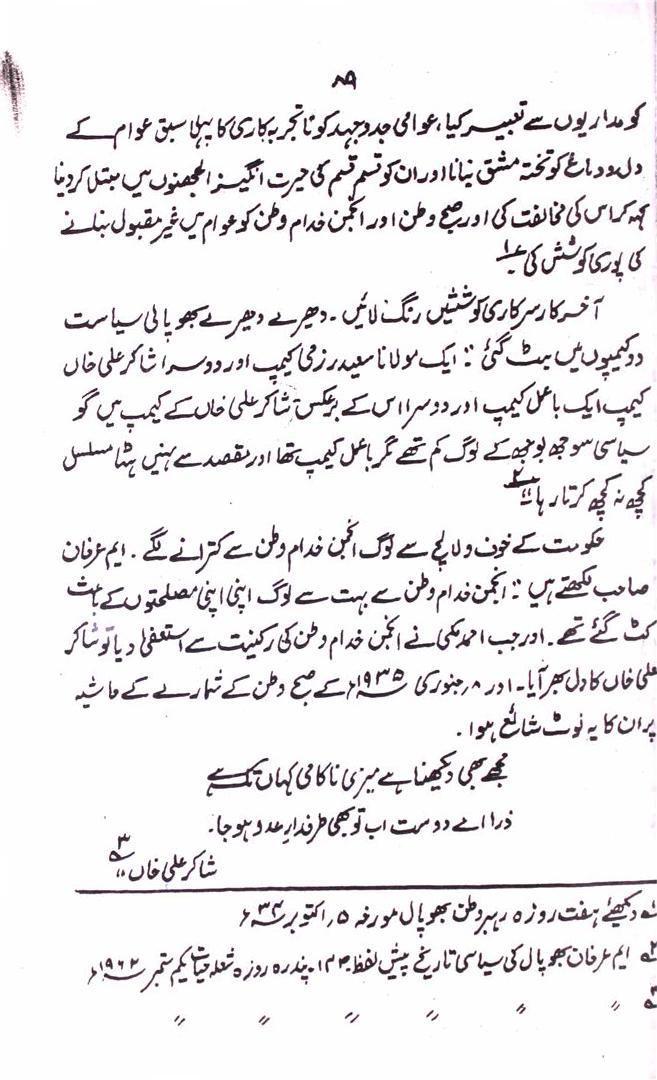 ۸۹
کو مداریوں سے تعبیر کیا، عوامی جدوجہد کو ناتجربہ کاری کا پہلا سبق عوام کے
دل و دماغ کو تختہ مشق بنانا اور ان کو قسم قسم کی حیرت انگیز الجھنوں میں مبتلا کر دینا
کہہ کر اس کی مخالفت کی اور صبح وطن اور انجمن خدام وطن کو عوام میں غیر مقبول بنانے
کی پوری کوشش کی ۱؎
آخر کار سرکاری کوششیں رنگ لائیں۔ دھیرے دھیرے بھوپالی سیاست
دو کیمپوں میں بٹ گئی "ایک مولانا سعید رزمی کیمپ اور دوسرا شاکر علی خاں
کیمپ ایک باعمل کیمپ اور دوسرا اس کے برعکس شاکر علی خاں کے کیمپ میں گو
سیاسی سوجھ بوجھ کے لوگ کم تھے مگر باعمل کیمپ تھا اور مقصد سے نہیں ہٹا مسلسل
کچھ نہ کچھ کرتا رہا" ۲؎
حکومت کے خوف و لالچ سے لوگ انجمن خدام وطن سے کترانے لگے۔ ایم عرفان
صاحب لکھتے ہیں "انجمن خدام وطن سے بہت سے لوگ اپنی اپنی مصلحتوں کے باعث
کٹ گئے تھے۔ اور جب احمد مکی نے انجمن خدام وطن کی رکنیت سے استعفیٰ دیا تو شاکر
علی خاں کا دل بھر آیا۔ اور ۸؍ جنوری ۱۹۳۵ء کے صبح وطن کے شمارے کے حاشیہ
پر ان کا یہ نوٹ شائع ہوا۔
مجھے بھی دیکھنا ہے میری ناکامی کہاں تک ہے
ذرا اے دوست اب تو بھی طرفدارِ عدو ہو جا۔
شاکر علی خاں" ۳؎
۱؎ دیکھئے ہفت روزہ رہبر وطن بھوپال مورخہ ۵؍ اکتوبر ۳۴ء
۲؎ ایم عرفان بھوپال کی سیاسی تاریخ پیش لفظ ۱۲۴۔ پندرہ روزہ شعلہ حیات یکم ستمبر ۱۹۶۲ء
۳؎ " " " " " "